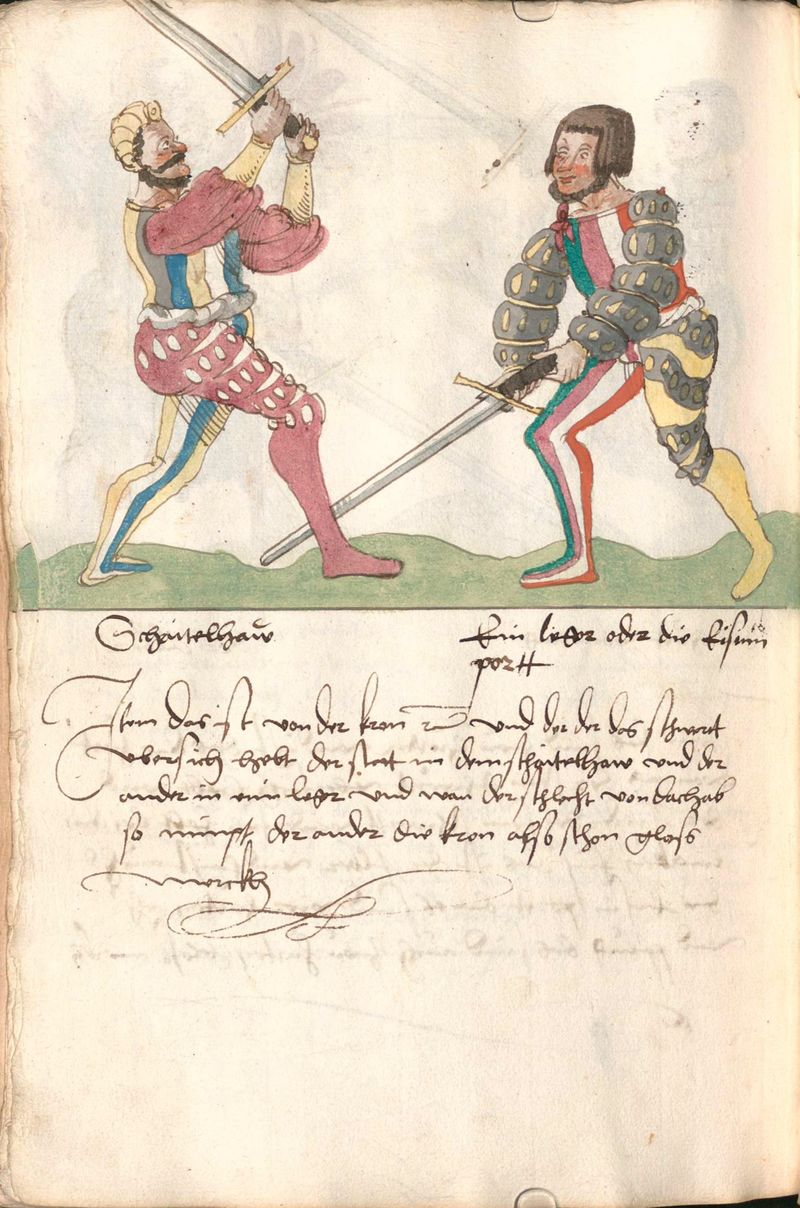 Schaitelhaw
Ein leger oder die Eisnin
port
Item das ist von der kron und der der das schwert
ubersich hebt der stat in dem schaitelhaw und der
ander in eim leger und wan der schlecht von dach ab
so nimpt der ander die kron also schon gloss
merckh